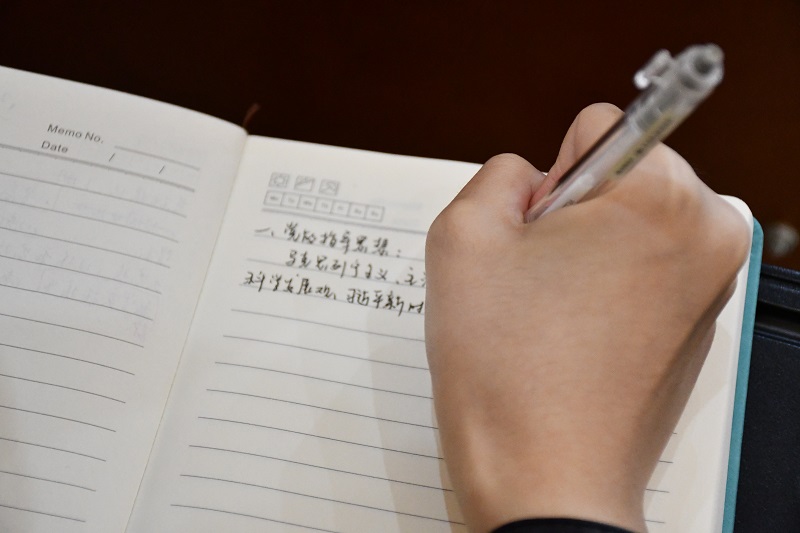 Memo No.
Date / /
一、党的指导思想：
马克思列宁主义、毛
科学发展观、习近平新时